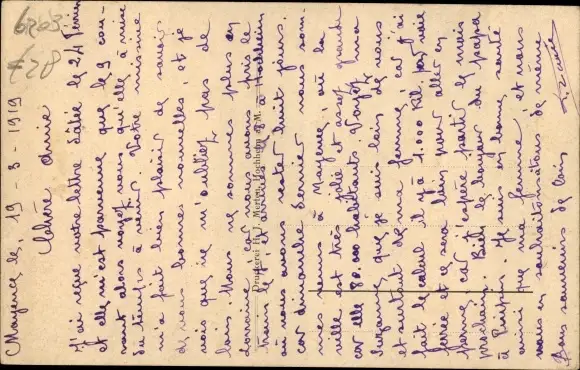 6263
€28
Mayence le, 19 - 3 - 1919
Chère Amie
J'ai reçue votre lettre datée le 24 février
et elle m'est parvenue que le 9 cou-
rant alors voyez vous qu'elle à mise
du temps à venir. Votre missive
m'a fait bien plaisir de savoir
de vous bonnes nouvelles, et je
vois que ne m'oubliez pas de
loin. Nous ne sommes plus en
Lorraine car nous avons pris le
train le 1 et arrivé le 3 à Hochheim
où nous avons rester huit jours.
car dimanche dernier nous som-
mes venus à Mayence, où la
ville est très jolie et assez grande
car elle 80.000 habitants. Voyez ma
Suzanne que je suis loin de vous
et surtout de ma femme, car j'ai
fait le calcul il y à 1.000 Kil. par voie
ferrée et ce sera long pour aller en
perme, car j'espère partir le mois
prochain. Bien le bonjour du papa
à Je suis en bonne santé
ainsi que ma femme et nous
vous en souhaitons de même
Bons souvenirs de loin
Druckerei H. J. Hochheim a. M.